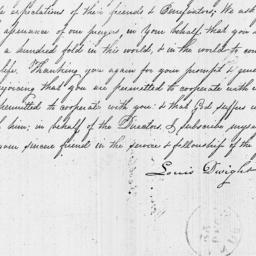 expectations of their friends & Benefactors; We ask
assurance of our prayers, in your behalf, that you
a hundred fold in this world, & in the world to com
life. Thanking you again for your prompt & gene
rejoicing that you are permitted to cooperate with u
permitted to cooperate with you: & that God suffers u
him; in behalf of the Directors, I subscribe myse
your sincere friend in the service & fellowship of the
Louis Dwight